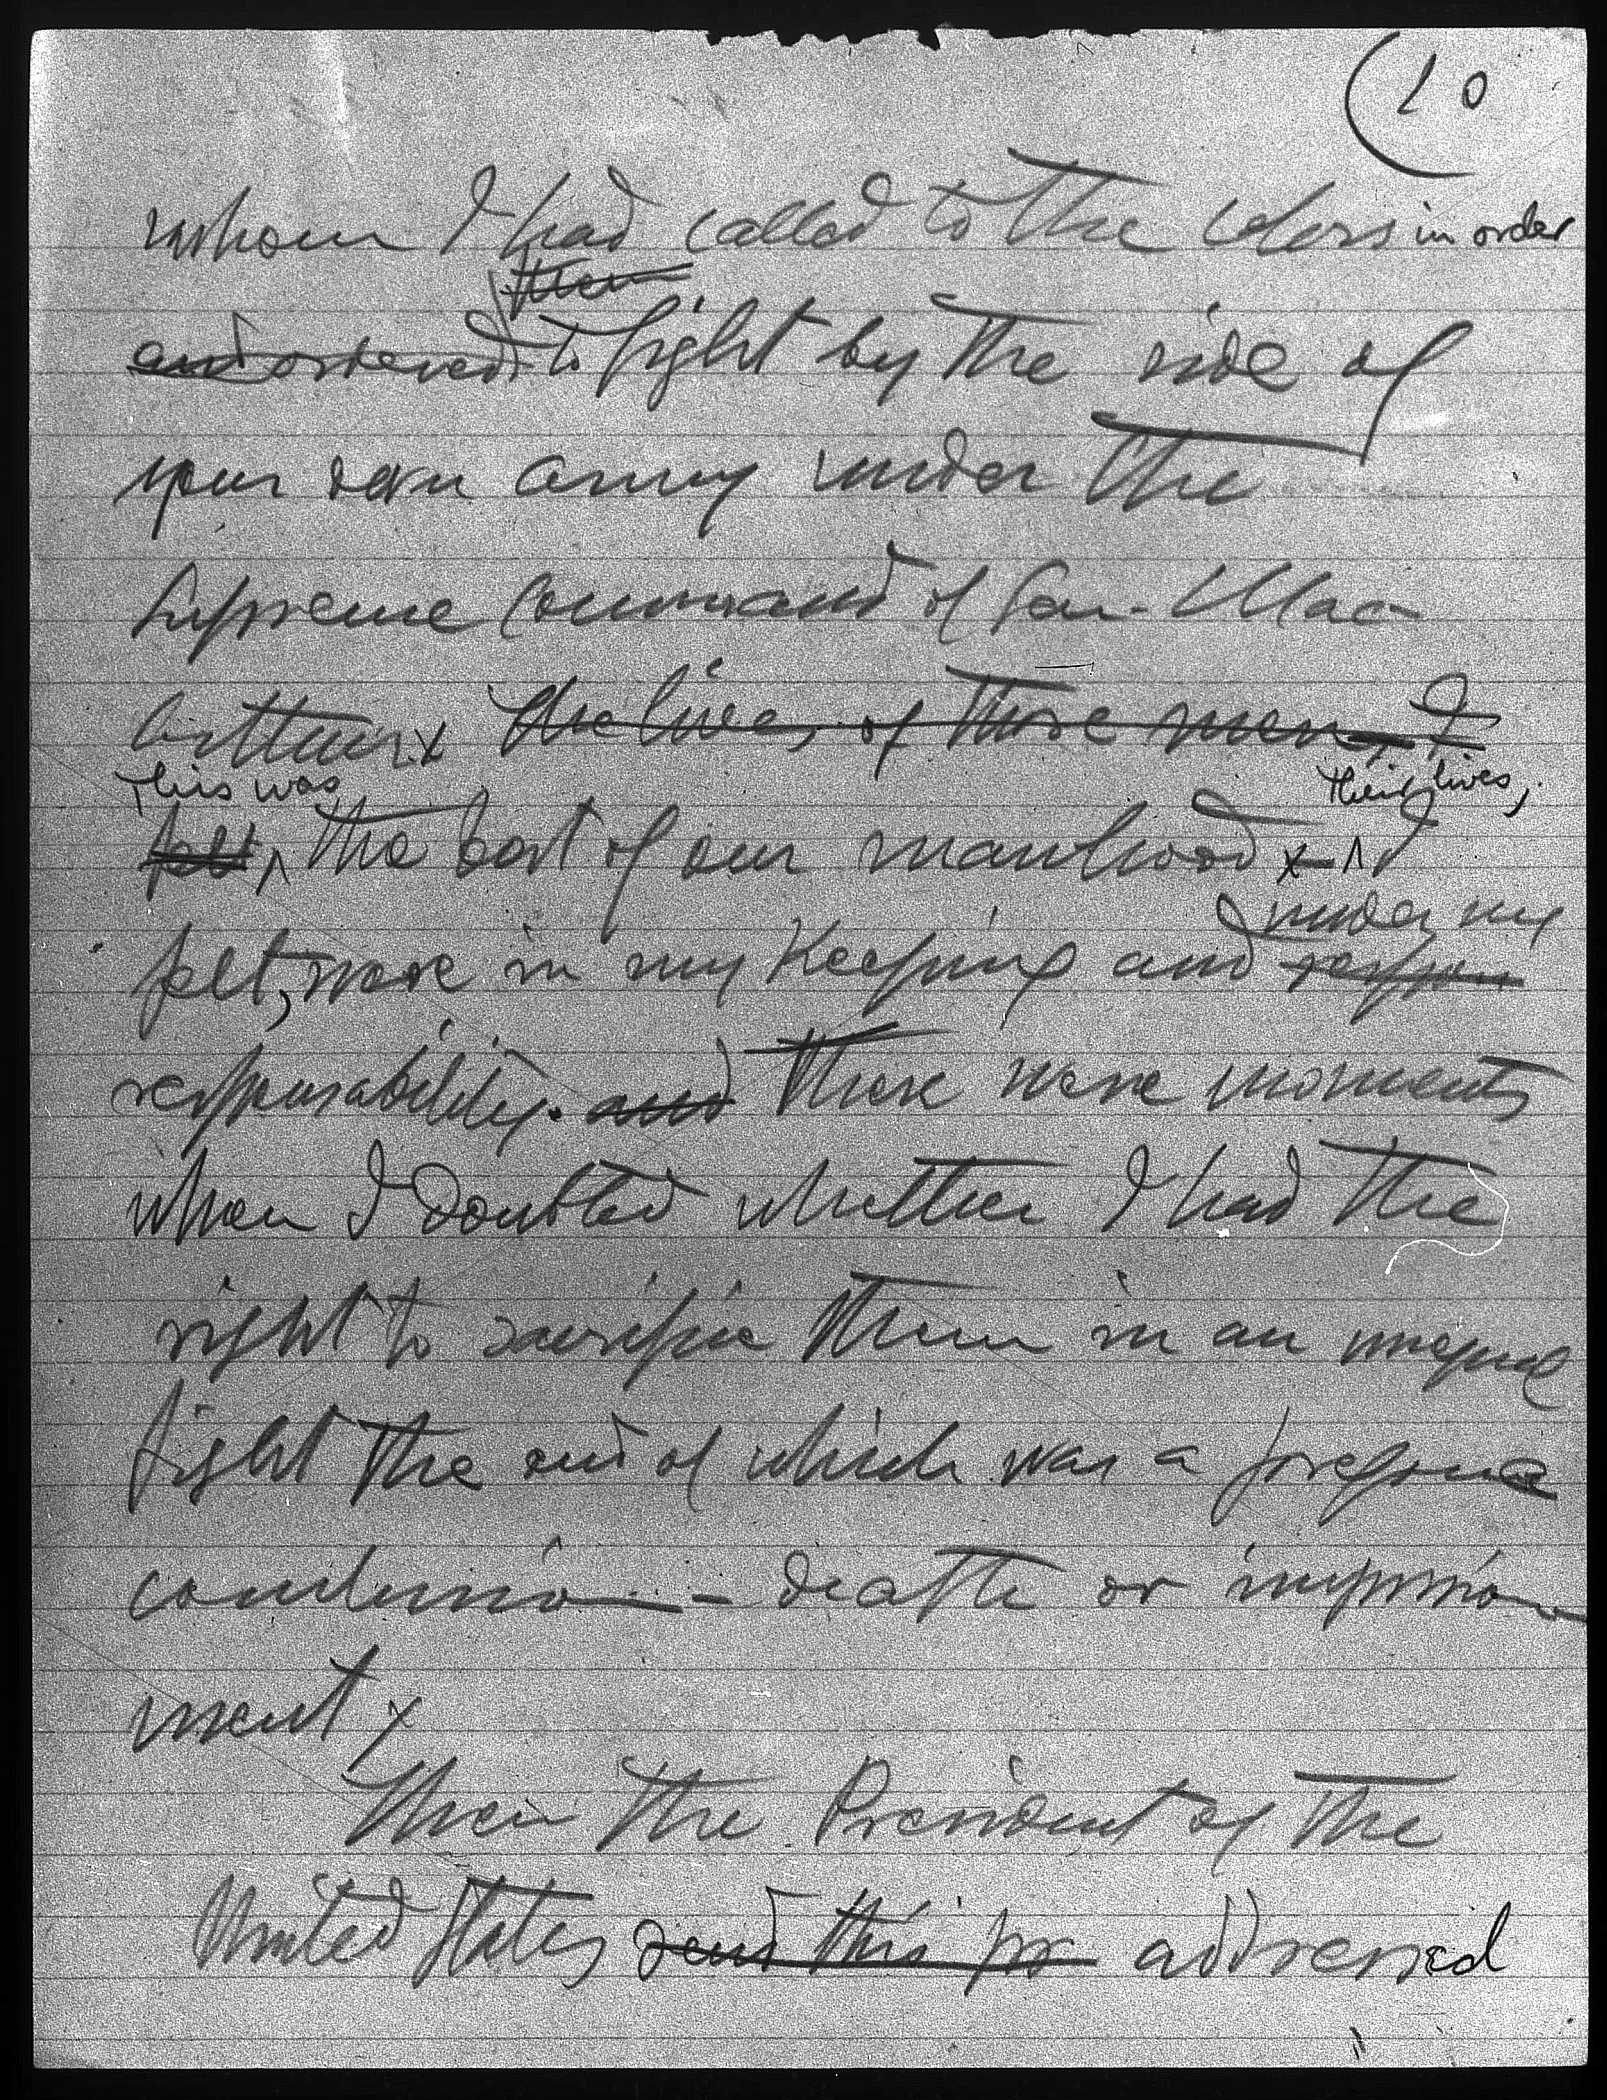 10
whom I had called to the colors in order
them
and ordered to fight by the side of
your own army under the
Supreme Command of Gen. Mac
Arthur x the lives of those men, I
This was their lives,
felt, the best of our manhood x I
under my
felt, were in my keeping and respon
responsability. and there were moments
when I doubted whether I had the
right to sacrifice them in an unequal
fight the end of which was a foregone
conclusion - death or imprison
ment x
Then the President of the
United States send this pr addressed